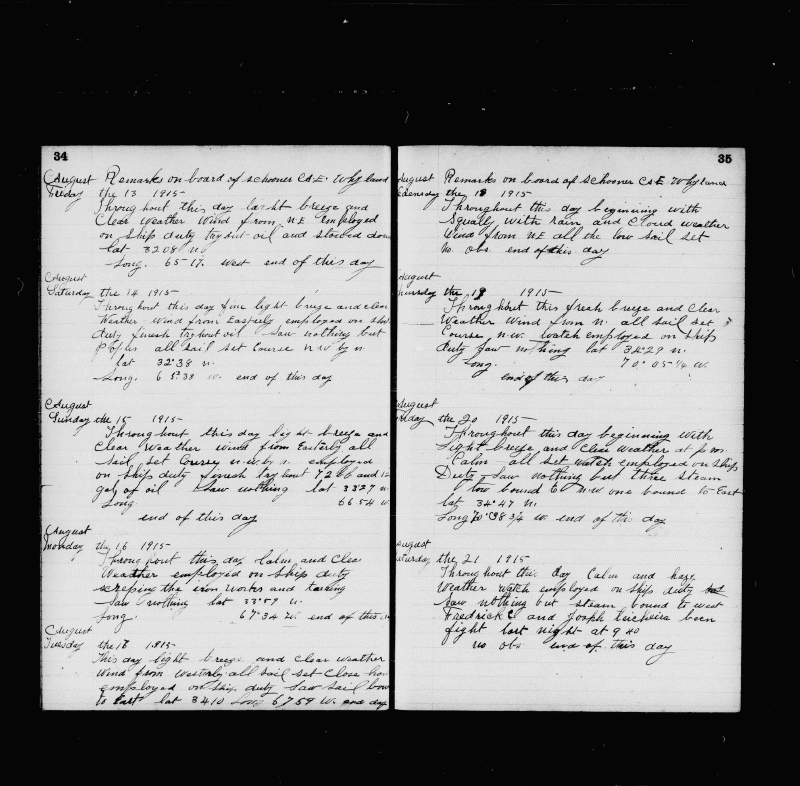 34
August Remarks on board of schooner A.E. Whyland
Friday the 13 1915-
Throughout this day light breeze and
Clear Weather Wind from NE employed
on ship duty try out oil and stowed down
lat 32 08 N.
Long. 65-17. West end of this day
August
Saturday the 14 1915-
Throughout this day fine light breeze and clear
Weather wind from Easterly employed on ship
duty finish tryout oil saw nothing but
all sail set Course NW by N
lat 32°38 N.
Long. 65°38 W. end of this day
August
Sunday the 15 1915-
Throughout this day light breeze and
Clear Weather wind from Easterly all
sail set Course N.W. by N. employed
on ship duty finish 72 bb and 12
gas of oil saw nothing lat 33 27 N
Long. 66 54 W
end of this day
August
Monday the 16 1915-
Throughout this day Calm and Clea
Weather employed on ship duty
screping the iron works and taring
saw nothing lat 33°59 N.
Long. 67°34 W. end of this
August
Tuesday the 17 1915-
This day light breeze and clear weather
Wind from Westerly all sail set Close
employed on ship duty saw sail boun
to East lat 34 10 Long 67 59 W. end day
35
August Remarks on board of schooner A.E. Whyland
Wednesday the 18 1915-
Throughout this day beginning with
Squally with rain and Cloud weather
Wind from NE all the low sail set
No obs. end of this day
August
Thursday the 19 1915-
Throughout this fresh breeze and Clear
Weather Wind from N. all sail set
Course N.W. watch employed on ship
duty saw nothing lat 34°29 N.
Long. 70°05 1/4 W.
end of this day
August
Friday the 20 1915-
Throughout this day beginning with
Light breeze and Clear weather at p.m.
Calm all set watch employed on ship
Duty saw nothing but three steam
two bound to N.W one bound to East
lat 34°47 N.
Long 70°08 3/4 W. end of this day
August
Saturday the 21 1915-
Throughout this day Calm and hazy
Weather watch employed on ship duty
Saw nothing but steam bound to west
Fredrick and Joseph been
fight last night at 9 40
no obs end of this day